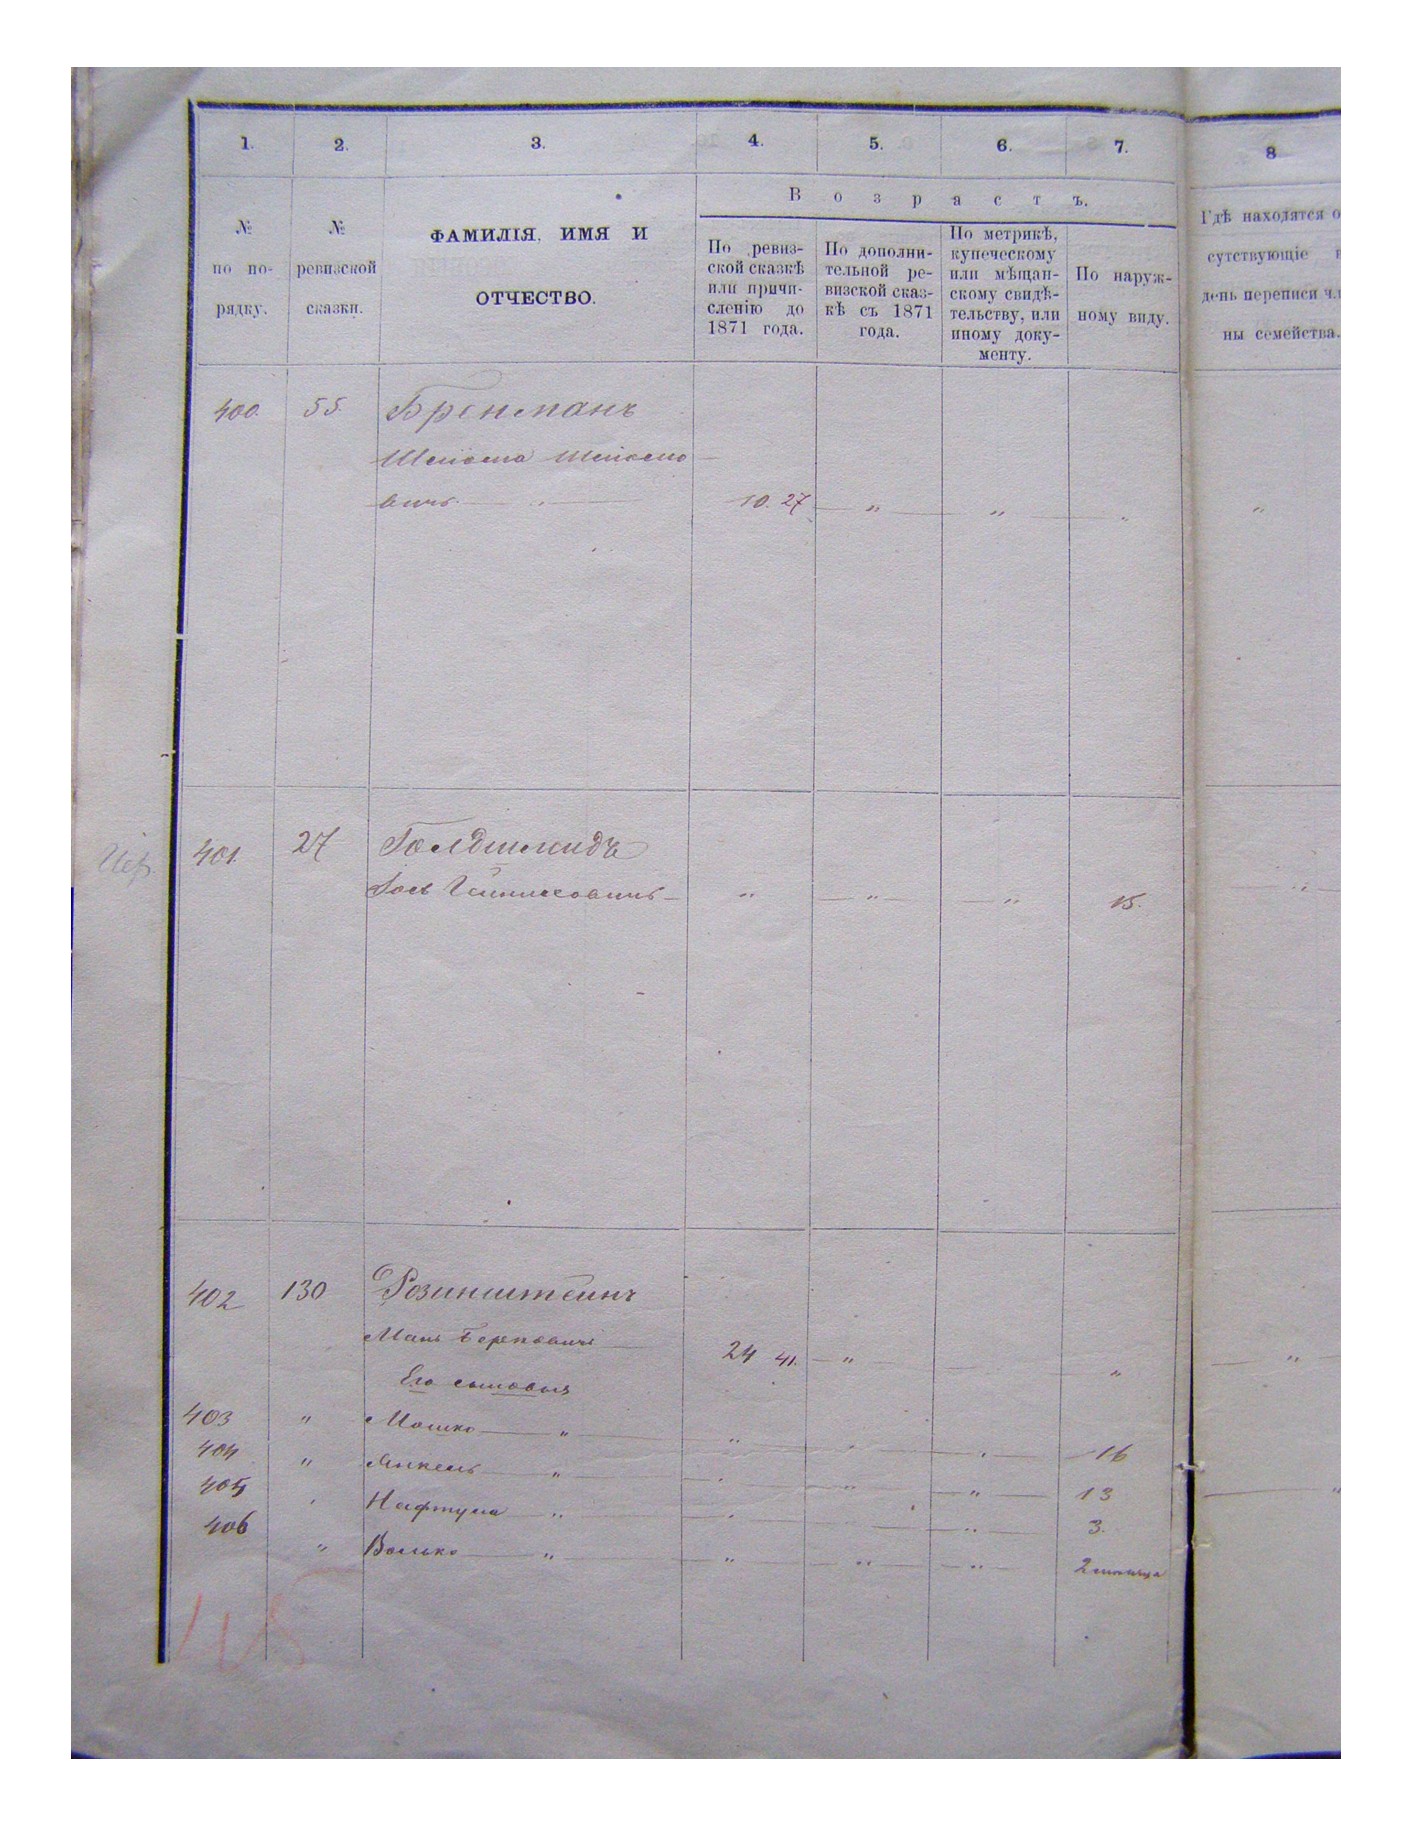 1. 2. 3. 4. 5. 6. 7. 8
№ по по-рядку.
№ ревизской сказки.
ФАМИЛІЯ, ИМЯ И
ОТЧЕСТВО.
Возрастъ.
По ревиз-
ской сказкѣ
или причи-
сленію до
1871 года.
По дополни-
тельной ре-
визской сказ-
кѣ съ 1871
года.
По метрикѣ,
купеческому
или мѣщан-
скому свидѣ-
тельству, или
иному доку-
менту.
По наруж-
ному виду.
Гдѣ находятся о
сутствующіе в
день переписи чл
ны семейства.
400. 55. Бренманъ
вичъ. 10. 27 " " " "
401. 27 Голдшмидъ
" " " 15. "
402 130 Розинштейнъ
Берковичъ 24 41. " " "
Его сыновья
403 " Мошко " " " " 16
404 " Янкель " " " " 13 "
405 " Нафтула " " " 3.
406 " Волько " " " " 2 месяца